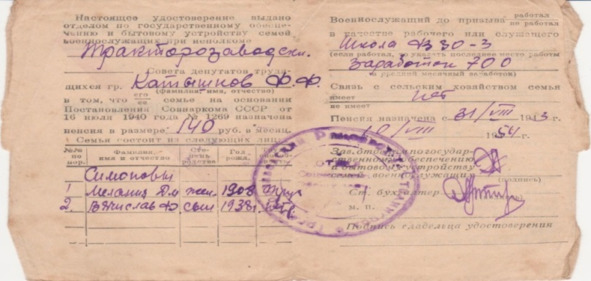 Настоящее удостоверение выдано
отделом по государственному обеспе-
чению и бытовому устройству семей
военнослужащих при исполкоме
Тракторозаводск.
Совета депутатов трудя-
щихся гр. Катышков Ф. Ф.
(фамилия, имя, отчество)
в том, что его семье на основании
Постановления Совнаркома СССР от
16 июля 1940 года № 1269 назначена
пенсия в размере 140 руб. в месяц.
Семья состоит из следующих лиц:
Фамилия, имя и отчество
Год рожд.
1 1908
2. сын 1938
Военнослужащий до призыва работал
не работал
в качестве рабочего или служащего
Школа ФЗО-3
(если работал, то указать последнее место работы
Заработок 700
и средний месячный заработок)
Связь с сельским хозяйством семья
имеет
не имеет нет
Пенсия назначена с 31/VIII
1954
Зав. отделом по государ-
ственному обеспечению
и бытовому устройству
семей военнослужащих
(подпись)
Ст. бухгалтер
м. п.
Подпись владельца удостоверения